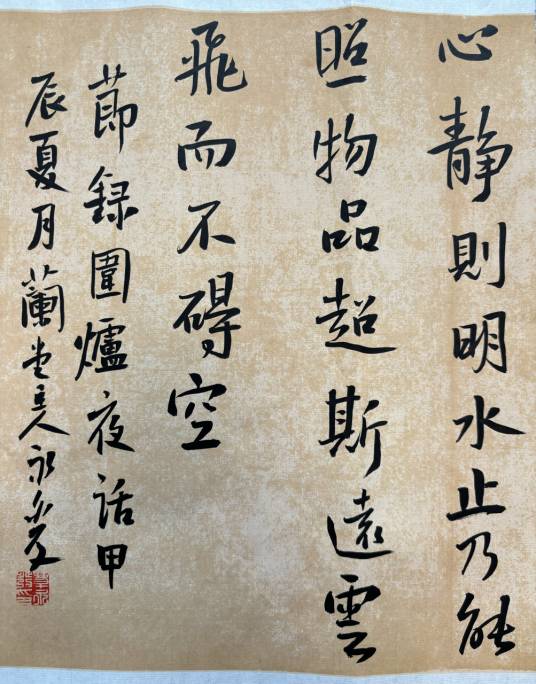 心静則明水止乃能
照物品超斯遠雲
飛而不碍空
節録圍爐夜話甲
辰夏月蘭堂吴永